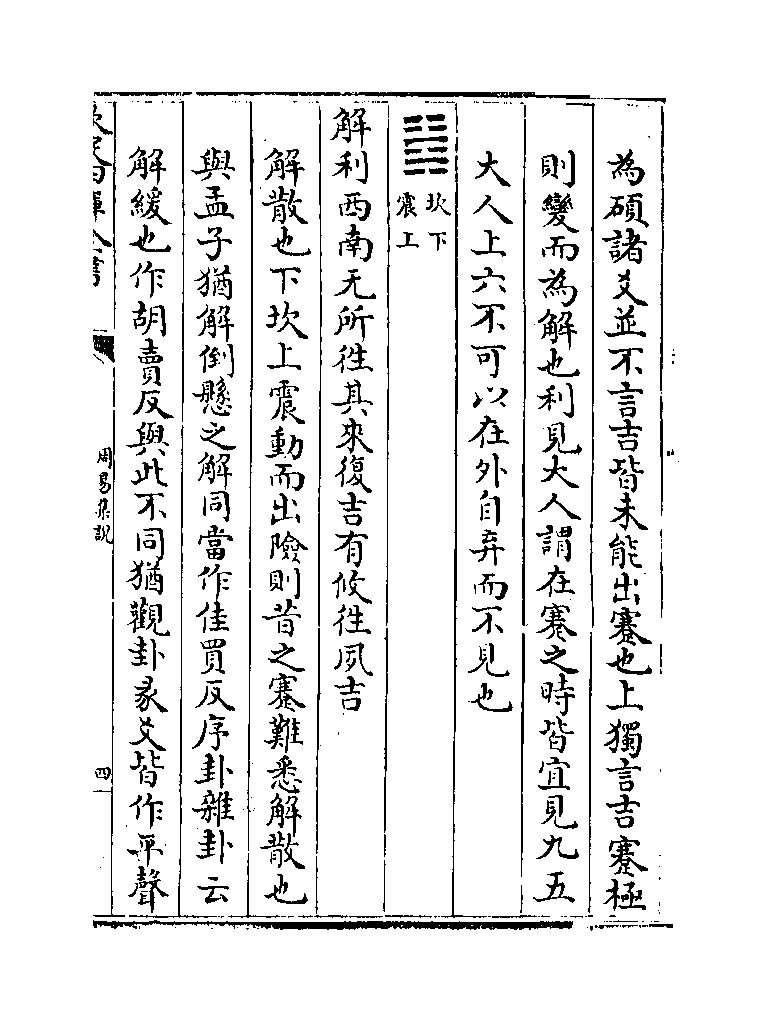 為碩諸爻並不言吉皆未能出蹇也上獨言吉蹇極
則變而為解也利見大人謂在蹇之時皆宜見九五
大人上六不可以在外自弃而不見也
坎下
震上
解利西南无所往其來復吉有攸往夙吉
解散也下坎上震動而出險則昔之蹇難悉解散也
與孟子猶解倒懸之解同當作佳買反序卦雜卦云
解緩也作胡賣反與此不同猶觀卦彖爻皆作平聲
周易集說
四